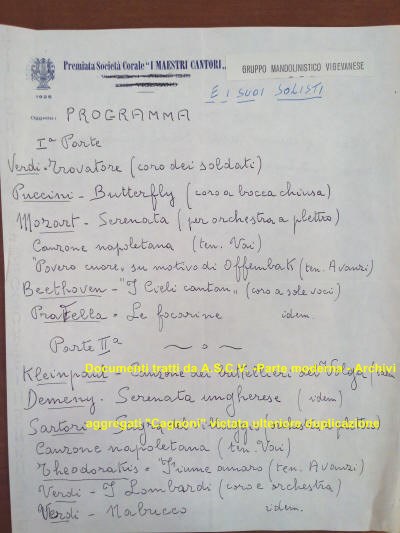 Premiata Società Corale "I MAESTRI CANTORI"
GRUPPO MANDOLINISTICO VIGEVANESE
1926
E I SUOI SOLISTI
Oggetto: PROGRAMMA
Iª Parte
Verdi - Trovatore (coro dei soldati)
Puccini - Butterfly (coro a bocca chiusa)
Mozart - Serenata (per orchestra a plettro)
Canzone napoletana (ten. Vai)
"Povero cuore" su motivo di Offembak (ten. Avanzi)
Beethoven - "I Cieli cantan" (coro a sole voci)
Pratella - Le focarine idem.
Parte IIª
Documenti tratti da A.S.C.V. -Parte moderna - Archivi
Kleinpaul - Canzone dei battellieri del Volga (idem)
Demeny - Serenata ungherese (idem)
aggregati "Cagnoni" vietata ulteriore duplicazione
Sartori -
Canzone napoletana (ten. Vai)
Theodorakis - "Fiume amaro (ten. Avanzi)
Verdi - I Lombardi (coro e orchestra)
Verdi - Nabucco idem.